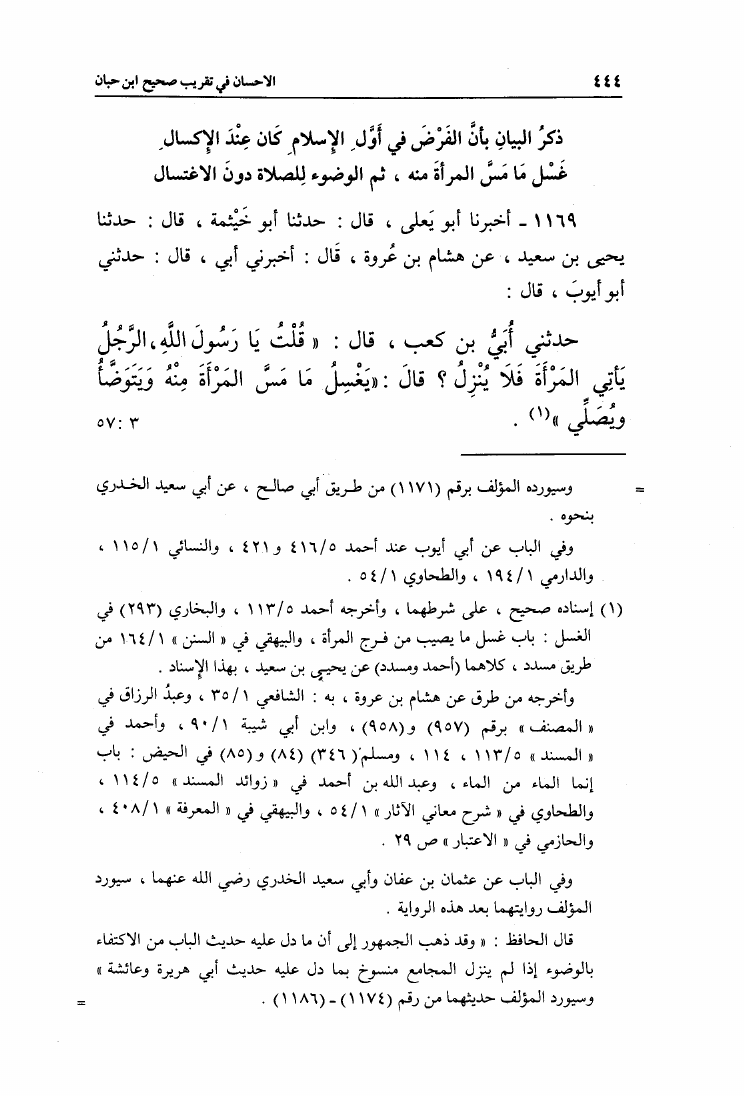 ٤٤٤ الاحسان في تقريب صحيح ابن حبان
ذكرُ البيانِ بأنَّ الفَرْضَ في أَوَّلِ الإِسلامِ كَان عِنْدَ الإِكسالِ
غَسْل مَا مَسَّ المرأةَ منه ، ثم الوضوء لِلصلاة دونَ الاغتسال
١١٦٩ ـ أخبرنا أبو يَعلى ، قال : حدثنا أبو خَيْثمة ، قال : حدثنا
يحيى بن سعيد ، عن هشام بن عُروة ، قَال : أخبرني أبي ، قال : حدثني
أبو أيوبَ ، قال :
حدثني أُبَيُّ بن كعب ، قال : « قُلْتُ يَا رَسُولَ اللَّهِ، الرَّجُلُ
يَأتِي المَرْأَةَ فَلَا يُنْزِلُ ؟ قالَ : «يَغْسِلُ مَا مَسَّ المَرْأَةَ مِنْهُ وَيَتَوَضَّأُ
ويُصَلِّي »(١) . ٣ : ٥٧
= وسيورده المؤلف برقم (١١٧١) من طريق أبي صالح ، عن أبي سعيد الخدري
بنحوه .
وفي الباب عن أبي أيوب عند أحمد ٤١٦/٥ و ٤٢١ ، والنسائي ١١٥/١ ،
والدارمي ١٩٤/١ ، والطحاوي ٥٤/١ .
(١) إسناده صحيح ، على شرطهما ، وأخرجه أحمد ١١٣/٥ ، والبخاري (٢٩٣) في
الغسل : باب غسل ما يصيب من فرج المرأة ، والبيهقي في « السنن » ١٦٤/١ من
طريق مسدد ، كلاهما (أحمد ومسدد) عن يحيى بن سعيد ، بهذا الإِسناد .
وأخرجه من طرق عن هشام بن عروة ، به : الشافعي ٣٥/١ ، وعبدُ الرزاق في
« المصنف » برقم (٩٥٧) و(٩٥٨) ، وابن أبي شيبة ٩٠/١ ، وأحمد في
« المسند » ١١٣/٥ ، ١١٤ ، ومسلم (٣٤٦) (٨٤) و(٨٥) في الحيض : باب
إنما الماء من الماء ، وعبد الله بن أحمد في « زوائد المسند » ١١٤/٥ ،
والطحاوي في « شرح معاني الآثار » ٥٤/١ ، والبيهقي في « المعرفة » ٤٠٨/١ ،
والحازمي في « الاعتبار » ص ٢٩ .
وفي الباب عن عثمان بن عفان وأبي سعيد الخدري رضي الله عنهما ، سيورد
المؤلف روايتهما بعد هذه الرواية .
قال الحافظ : « وقد ذهب الجمهور إلى أن ما دل عليه حديث الباب من الاكتفاء
بالوضوء إذا لم ينزل المجامع منسوخ بما دل عليه حديث أبي هريرة وعائشة »
وسيورد المؤلف حديثهما من رقم (١١٧٤) ـ (١١٨٦) . =